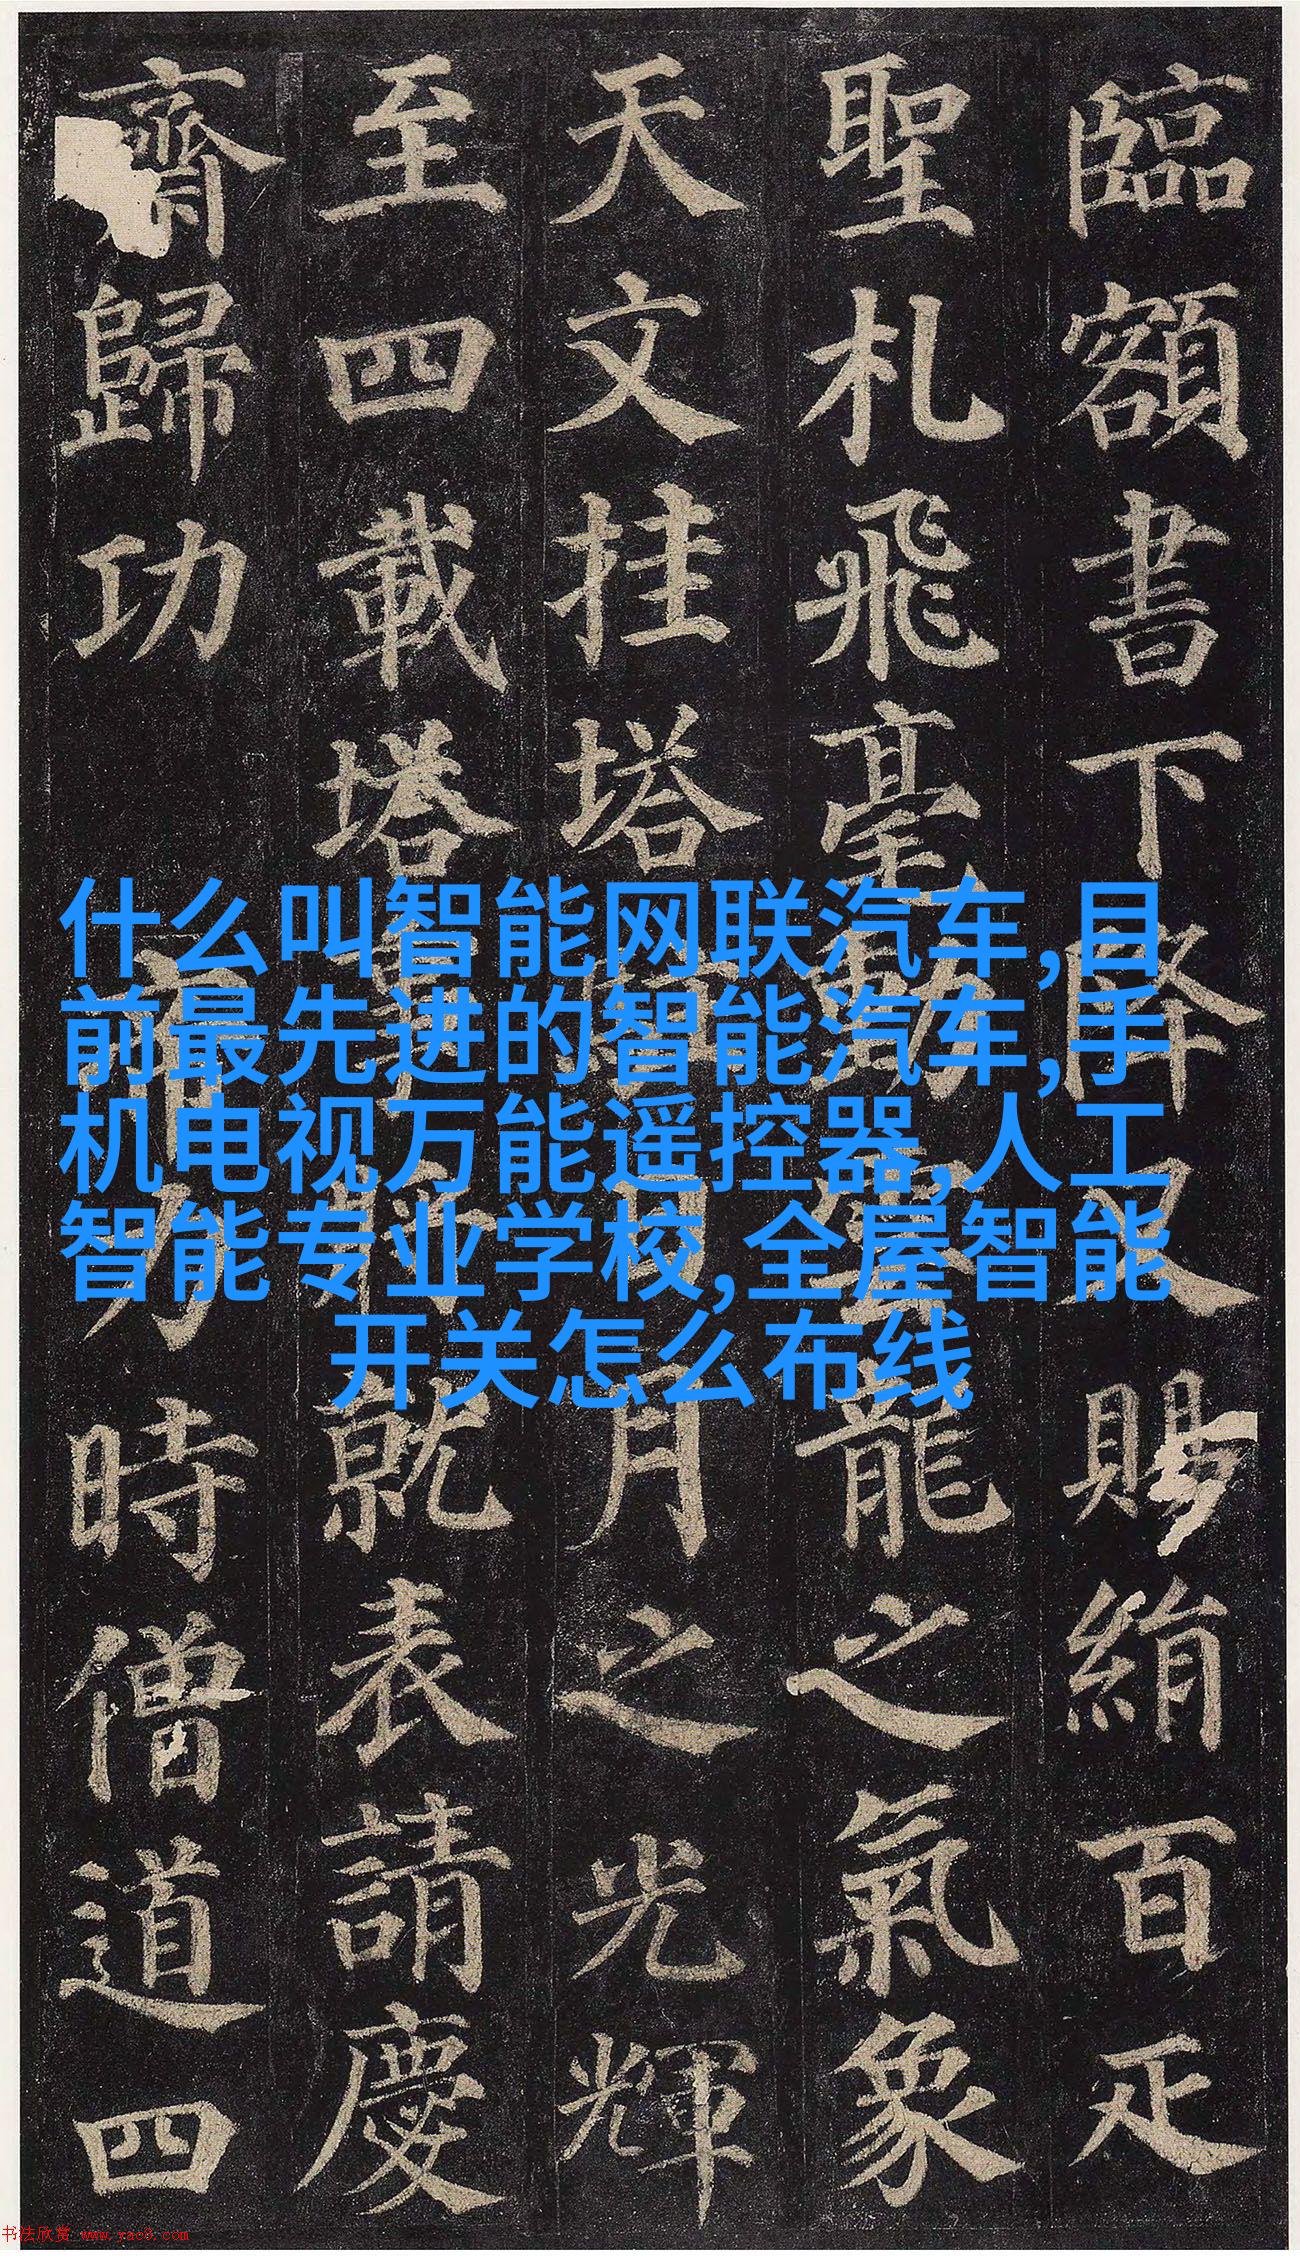 臨額書下降又賜絹百疋
聖札飛毫動雲龍之氣象
天文挂塔日月之光輝
至四載塔事將就表請慶
齊歸功帝力時僧道四
什么叫智能网联汽车,目
前最先进的智能汽车,手
机电视万能遥控器,人工
智能专业学校,全屋智能
开关怎么布线
书法欣赏 www.yac8.com